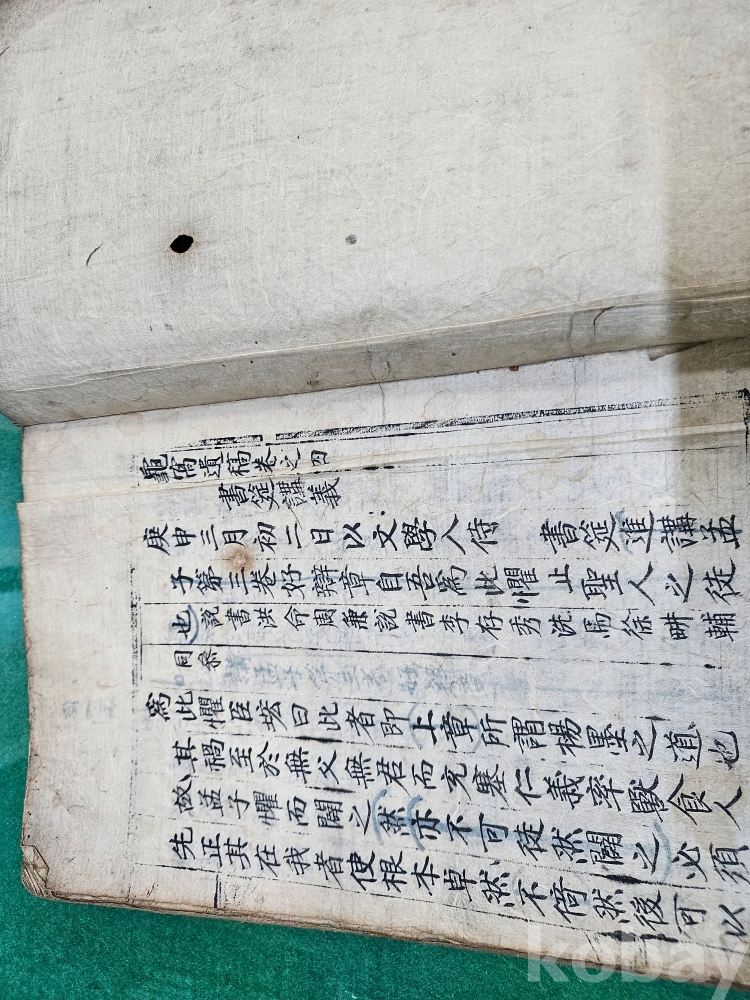 龜窩遺稿卷之四
書筵講義
庚申三月初二日以文學入侍 書筵進講孟
子第三卷好辯章自吾爲此懼止聖人之徒
也 說書洪命周兼說書李存秀洗馬徐畊輔
同參
爲此懼臣㙆曰此者卽上章所謂楊墨之道也
其禍至於無父無君而充塞仁義率獸食人
故孟子懼而闢之然亦不可徒然闢之必須
先正其在我者使根本卓然不倚然後可以
kobay